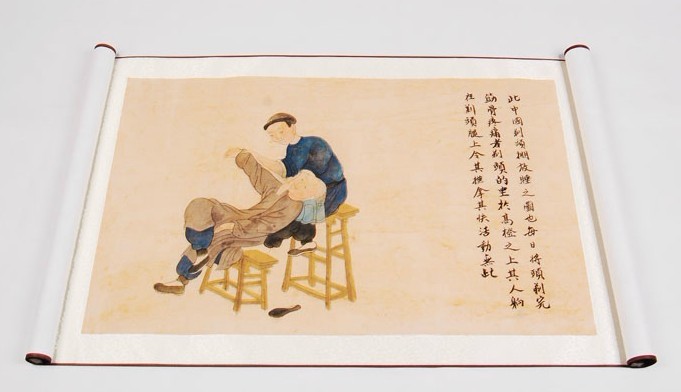 此中國剃頭棚放睡之圖也每日将頭剃完
筋骨疼痛者剃頭的坐扵高橙之上其人躺
在剃頭腿上令其捶拿其快活動無比